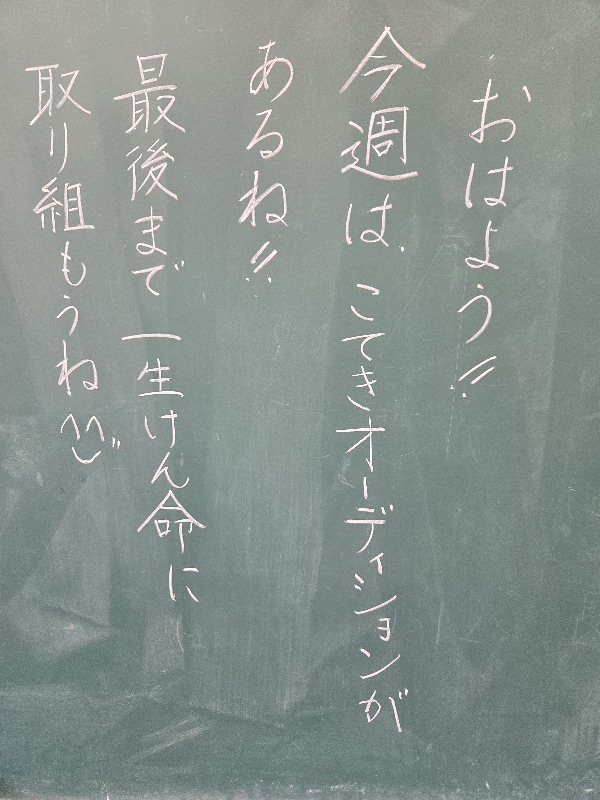 おはよう!!
今週は、こてきオーディションが
あるね!!
最後まで一生けん命に
取り組もうね^^